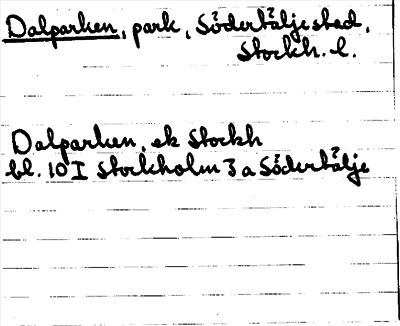 Dalparken, park, Södertälje stad,
Stockh. l.
Dalparken, ek Stockh
bl. 10 I Stockholm 3 a Södertälje